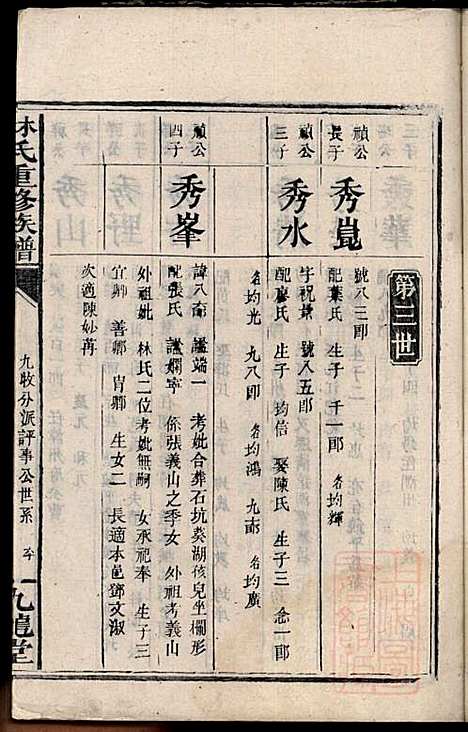 第三世
禎公
長子
秀崑
號八三郎
配葉氏 生子 千一郎 名均輝
禎公
三子
秀水
字祝景 號八五郎
配廖氏 生子 均信 娶陳氏 生子三 念一郎
名均光 九八郎 名均鴻 九郎 名均廣
禎公
四子
秀峯
諱八郎 諡端一 考妣合葬石坑葵湖孩兒坐欄形
配張氏 諡嫻寧 係張義山之季女 外祖考義山
外祖妣 林氏二位考妣無嗣 女承祀奉 生子三
宜卿 善卿 胄卿 生女二 長適本邑鄧文淑
次適陳妙苒
林氏重修族譜
九牧分派評事公世系
九龍堂